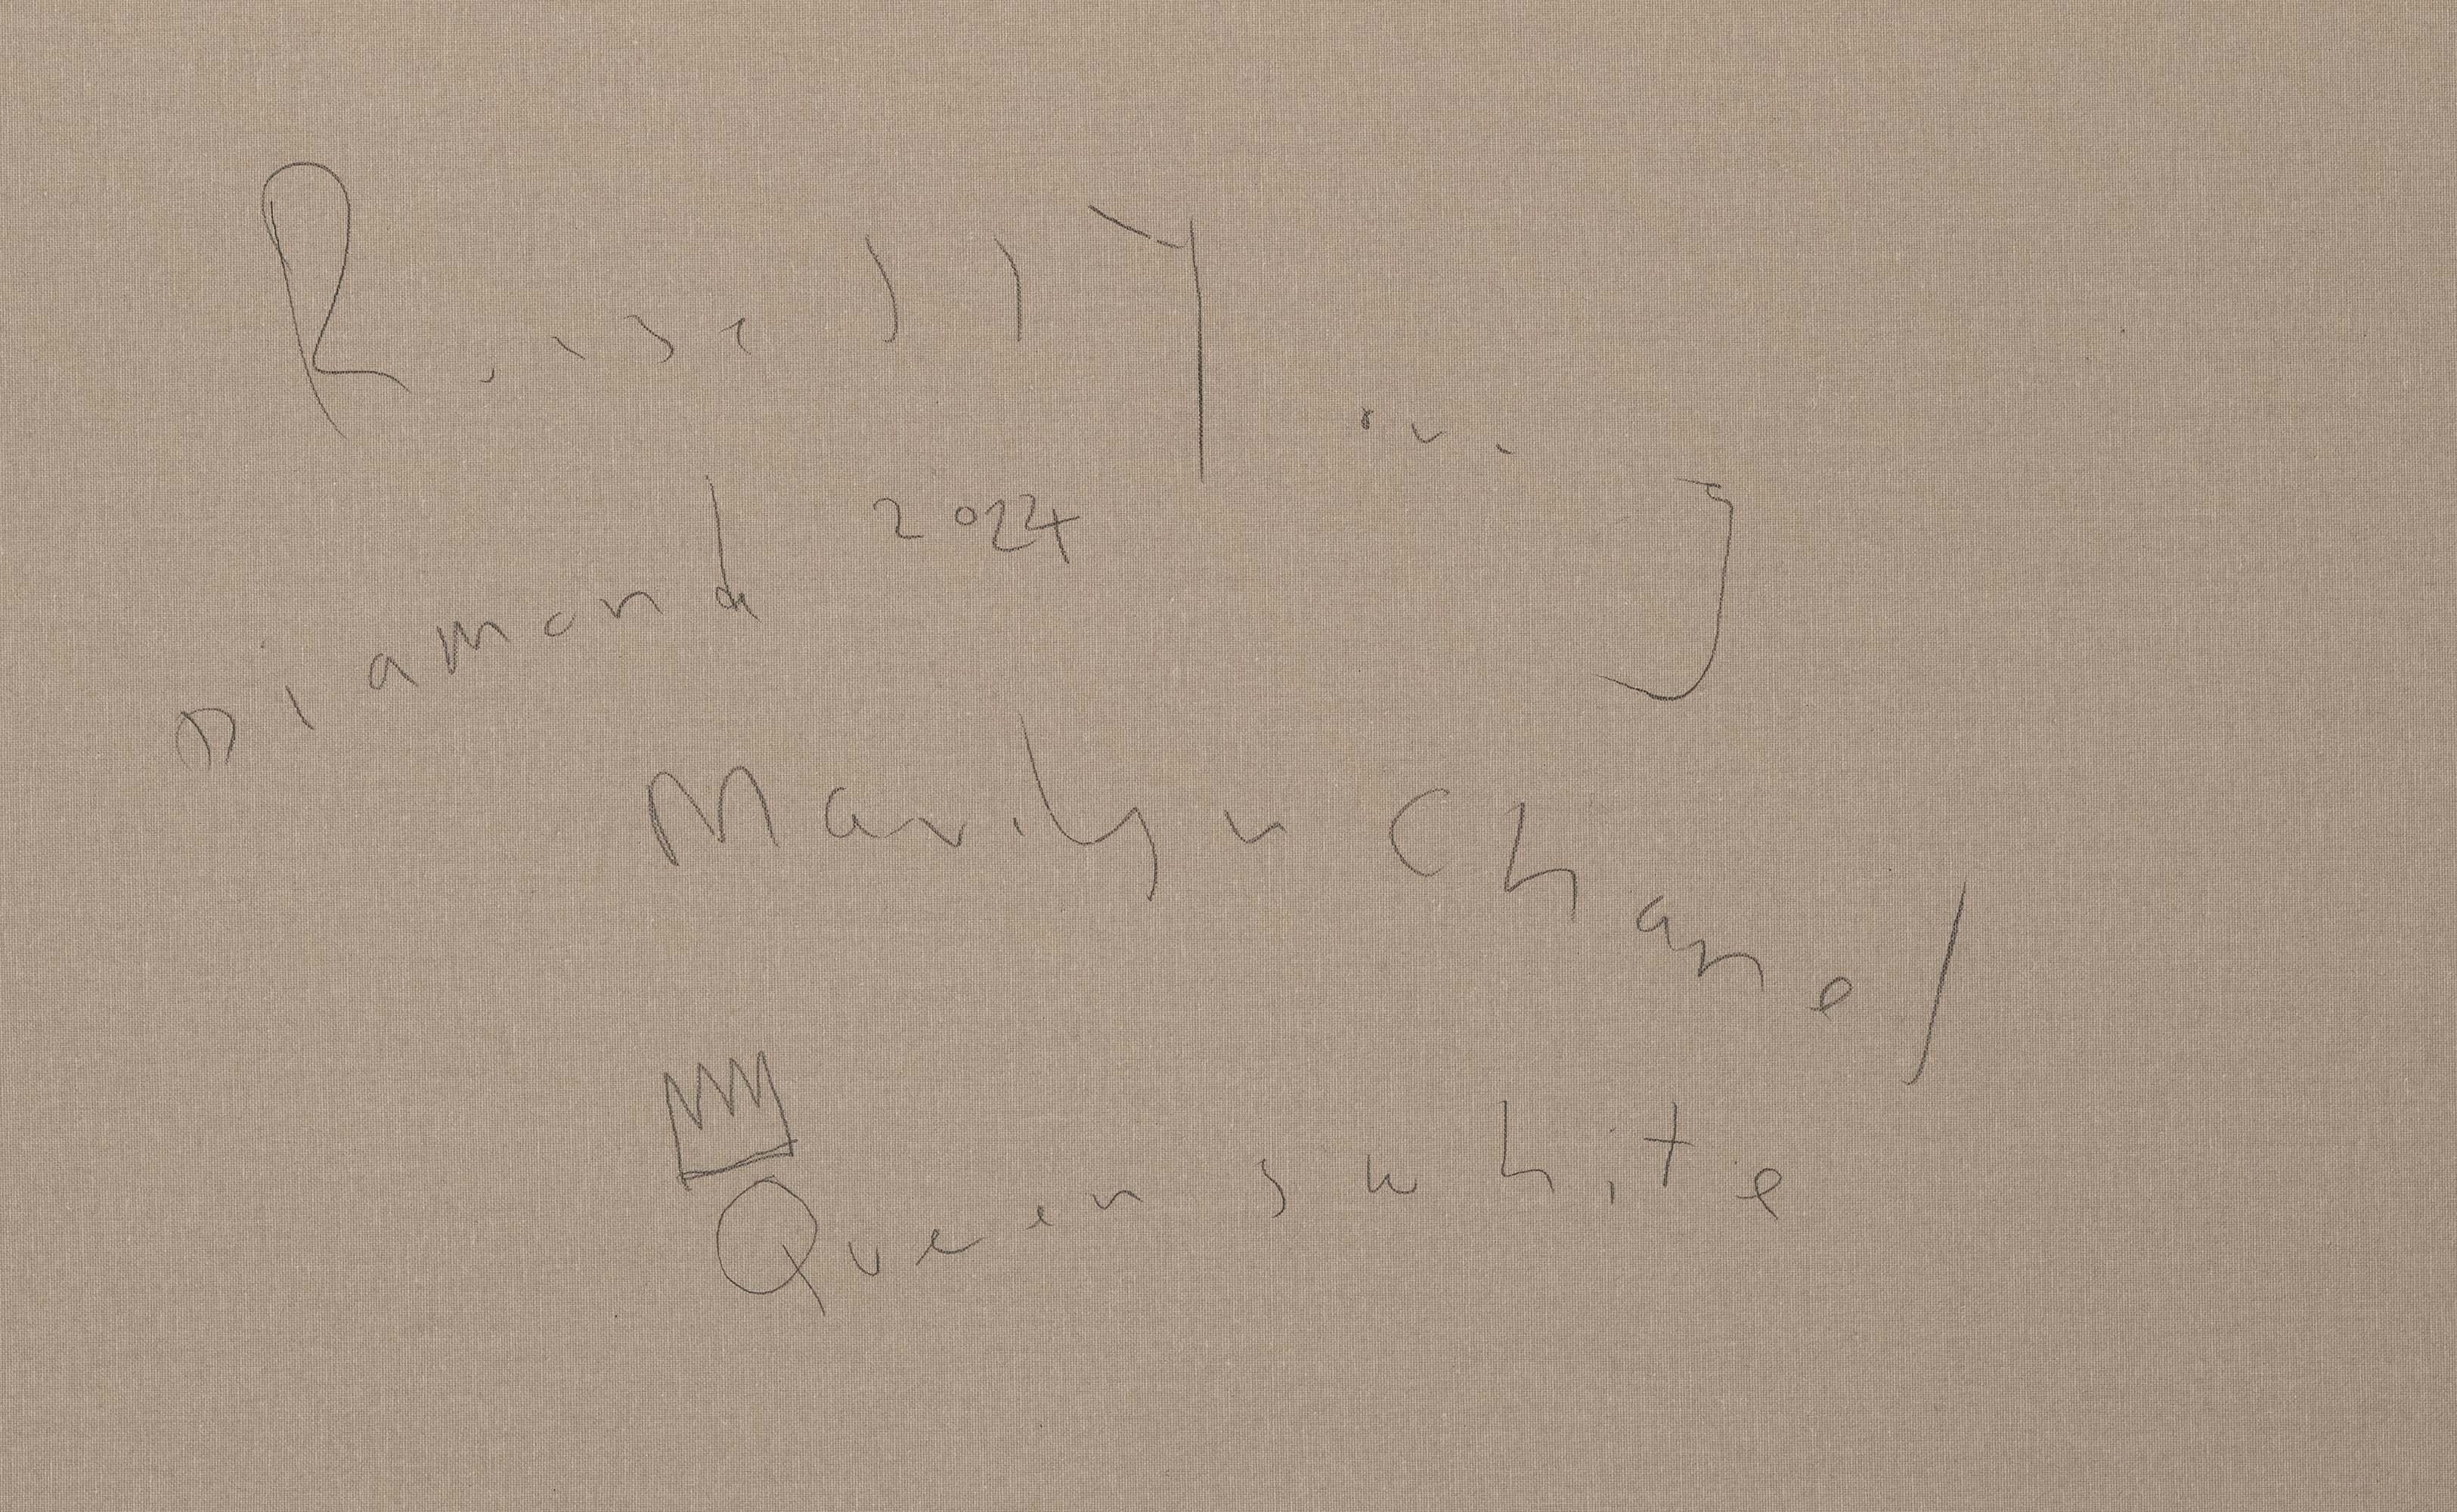 Russell Young
Diamond 2024
Marilyn Chanel
Queens white